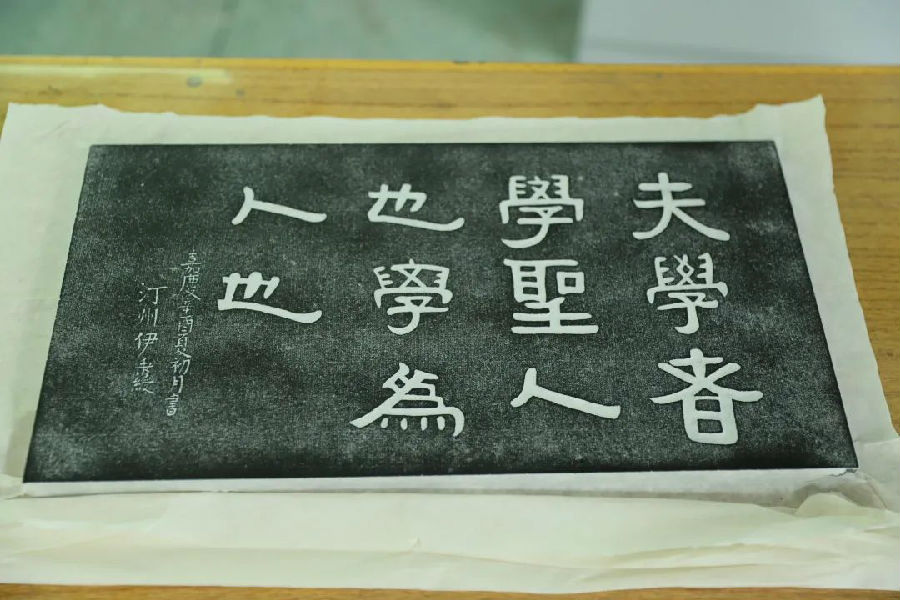 夫學者
學聖人
也學為
人也
嘉慶辛酉夏初月書
汀州伊秉綬